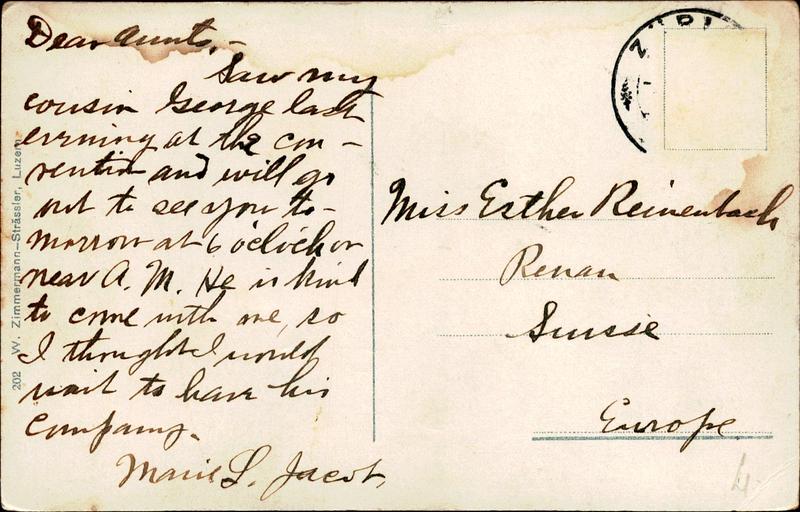 Dear Aunts, –
Saw my
cousin George last
evening at the con-
vention and will go
out to see you to-
morrow at 6 o'clock or
near A. M. He is kind
to come with me, so
I thought I would
wait to have his
company.
Marie L. Jacot.
202 W. Zimmermann–Strässler, Luzern.
Miss Esther Reinenbach
Renan
Suisse
Europe
4